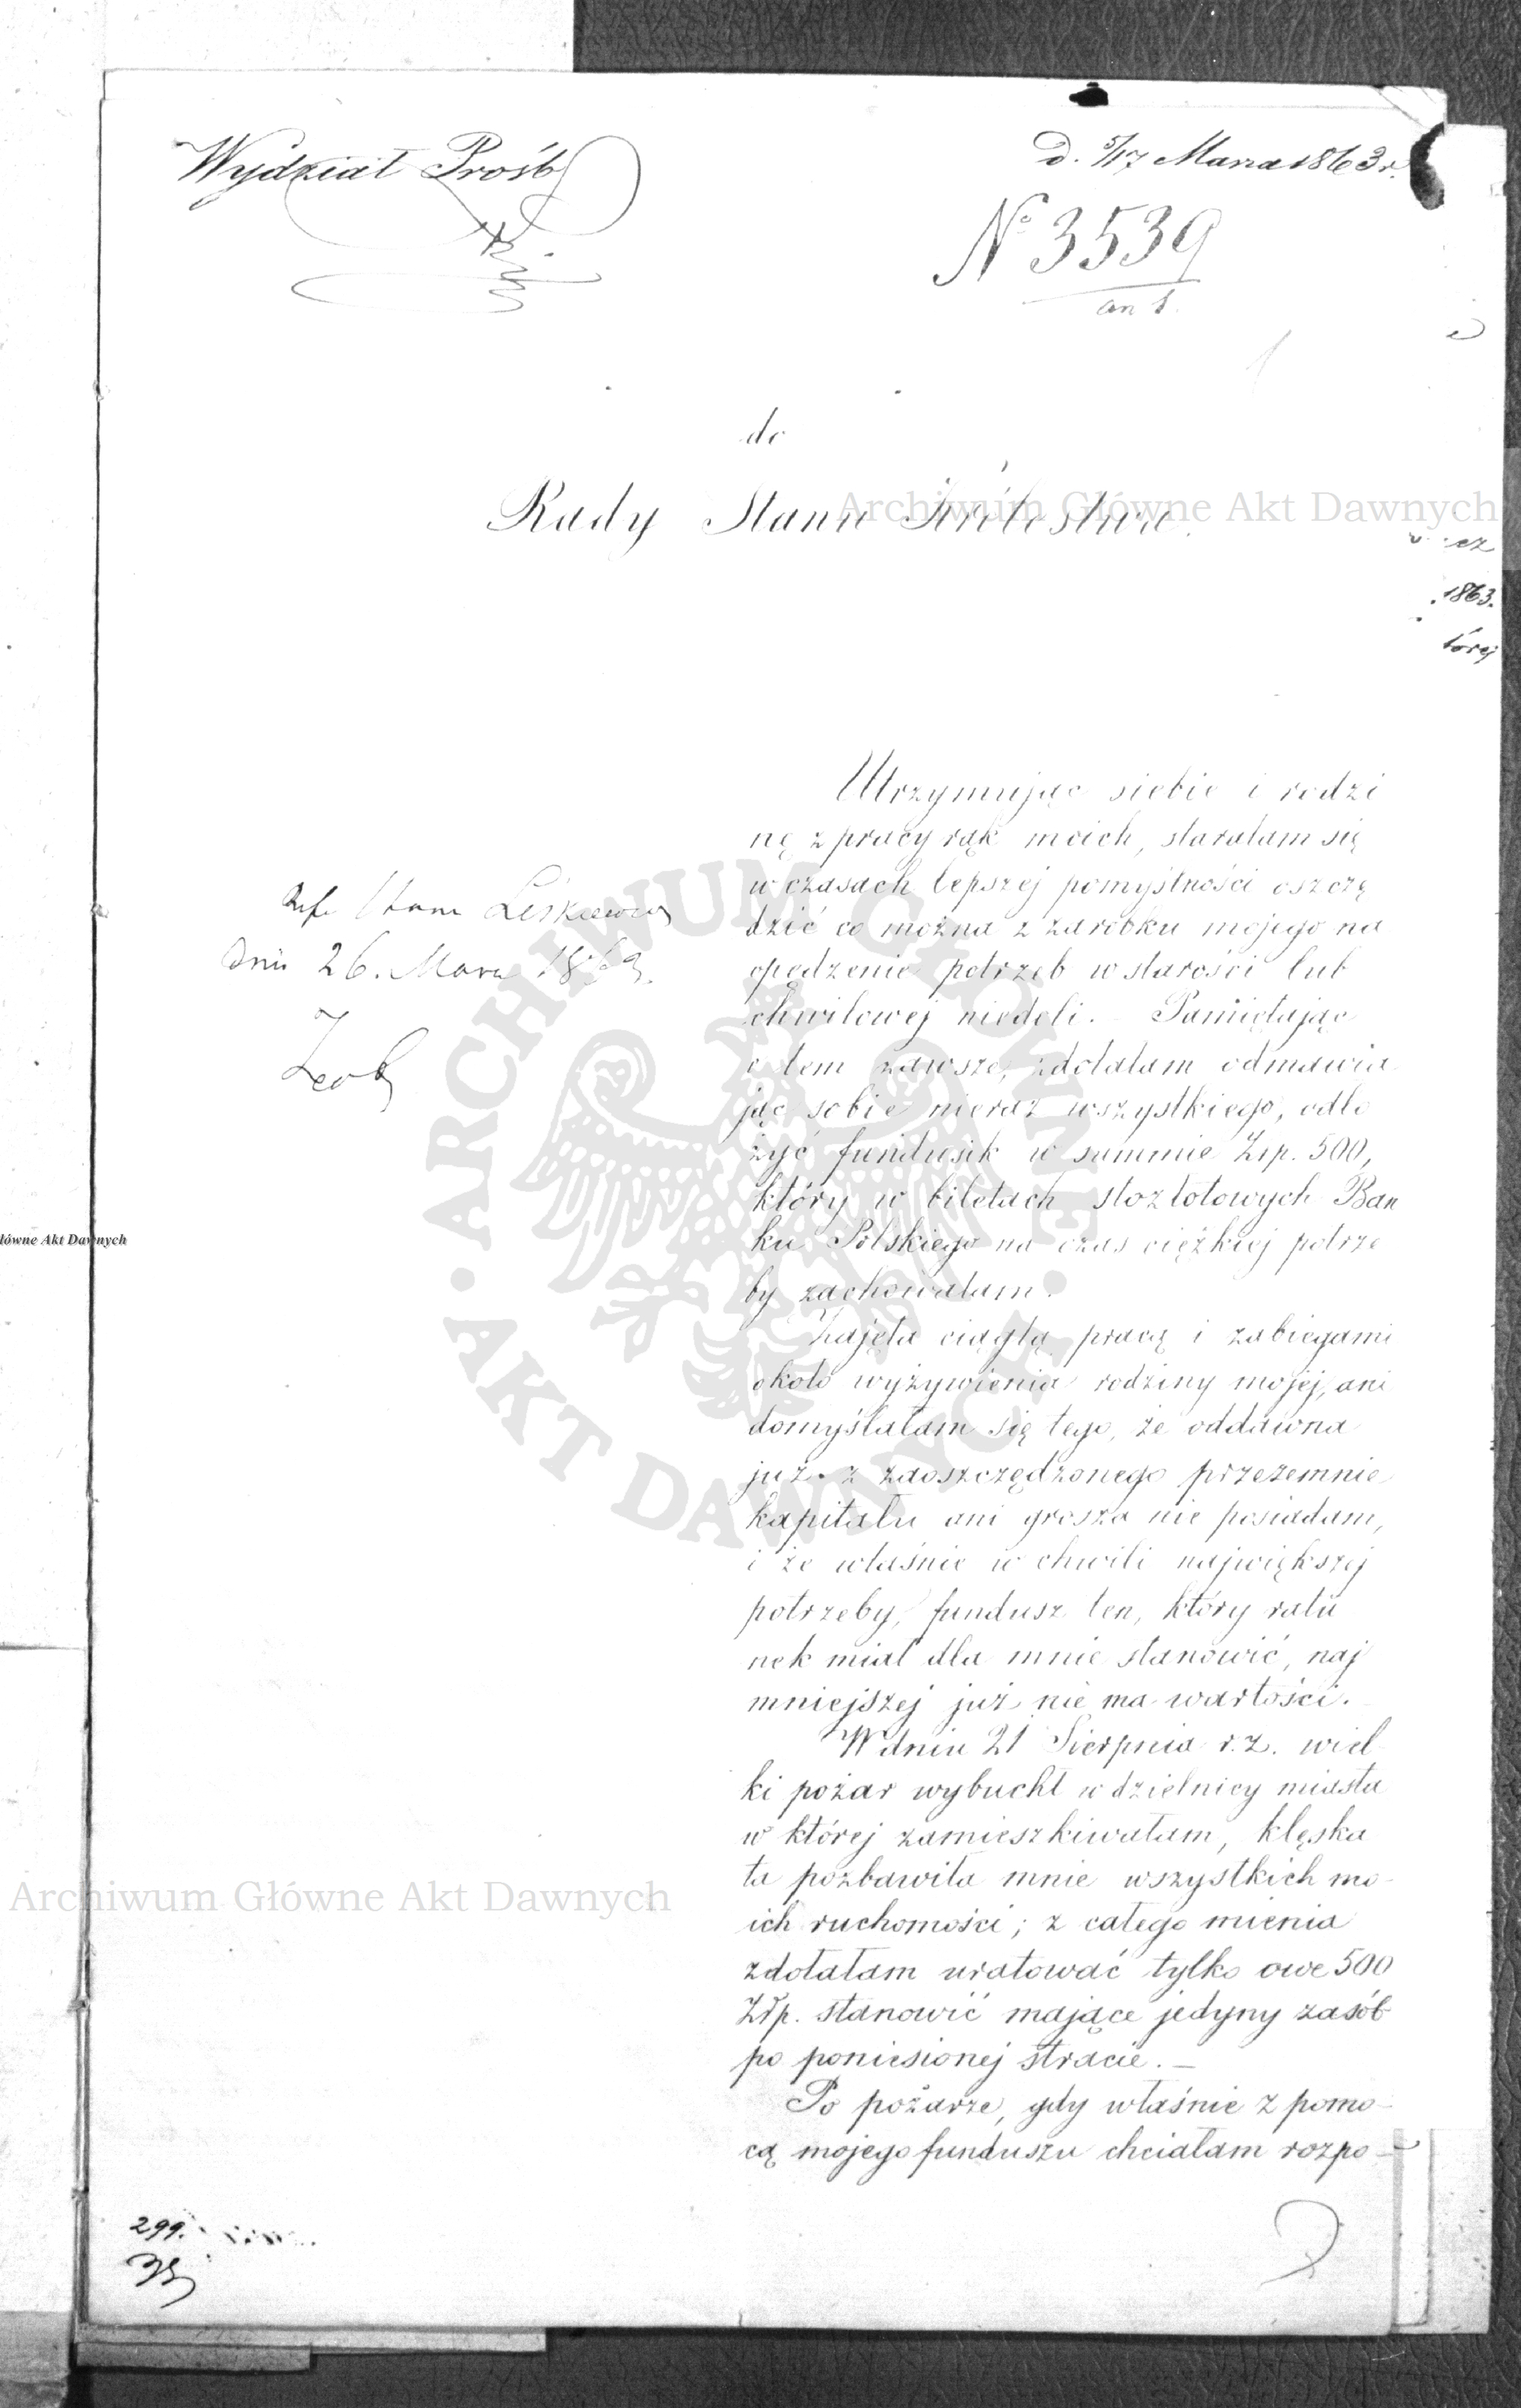 Wydział Prośb
D. 5/17 Marca 1863 r.
No 3539
do
Rady Stanu Królestwa.
Archiwum Główne Akt Dawnych
1863.
tórej
Utrzymując siebie i rodzi
nę z pracy rąk moich, starałam się
w czasach lepszej pomyślności oszczę
dzić co można z zarobku mojego na
opędzenie potrzeb w starości lub
chwilowej niedoli. Pamiętając
o tem zawsze, zdołałam odmawia
jąc sobie nieraz wszystkiego, odło
żyć fundusik w summie Złp. 500,
który w biletach stozłotowych Ban
ku Polskiego na czas ciężkiej potrze
by zachowałam.
Zajęta ciągłą pracą i zabiegami
około wyżywienia rodziny mojej, ani
domyślałam się tego, że oddawna
już z zaoszczędzonego przezemnie
kapitału ani grosza nie posiadam,
i że właśnie w chwili największej
potrzeby, fundusz ten, który ratu
nek miał dla mnie stanowić, naj
mniejszej już nie ma wartości.
W dniu 21 Sierpnia r. z. wiel
ki pożar wybuchł w dzielnicy miasta
w której zamieszkiwałam, klęska
ta pozbawiła mnie wszystkich mo-
ich ruchomości; z całego mienia
zdołałam uratować tylko owe 500
Złp. stanowić mające jedyny zasób
po poniesionej stracie. —
Po pożarze, gdy właśnie z pomo-
cą mojego funduszu chciałam rozpo-
Stanu Leśkiewicz
Dnia 26. Marca 1863.
główne Akt Dawnych
ARCHIWUM GŁÓWNE AKT DAWNYCH
Archiwum Główne Akt Dawnych
299.